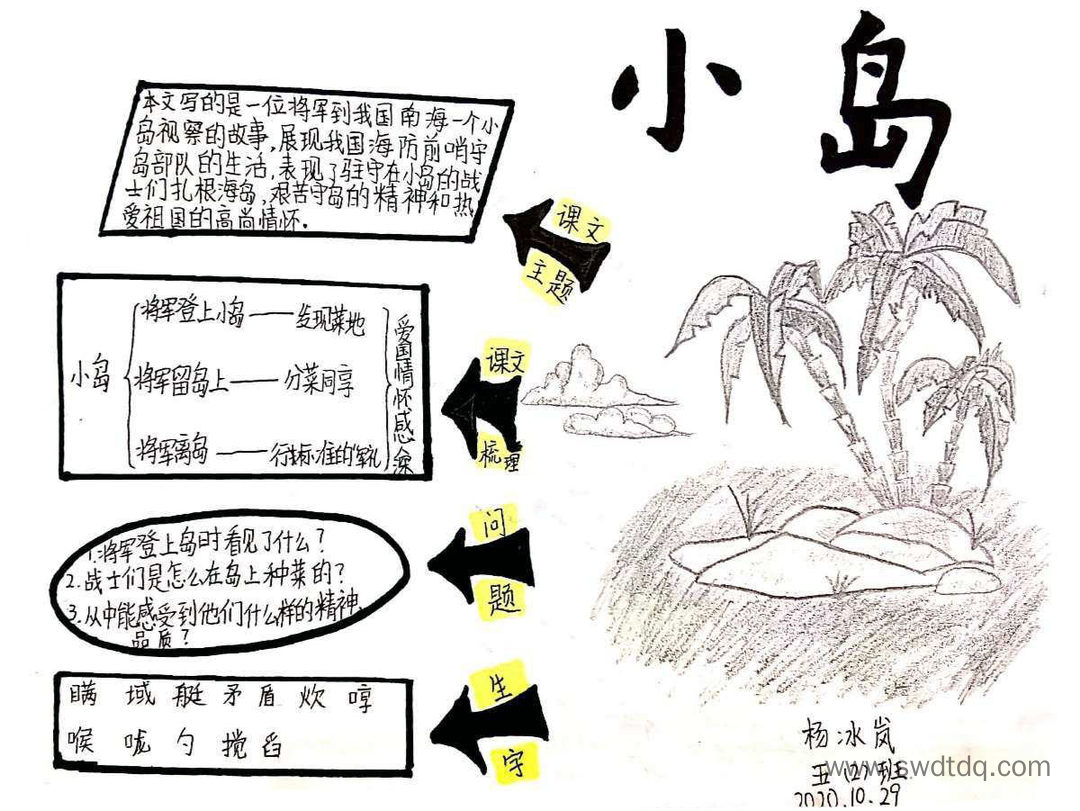 小岛
本文写的是一位将军到我国南海一个小
岛视察的故事,展现我国海防前哨守
岛部队的生活,表现了驻守在小岛的战
士们扎根海岛,艰苦守岛的精神和热
爱祖国的高尚情怀.
课文
主题
小岛
将军登上小岛——发现菜地
将军留岛上——分菜同享
将军离岛——行标准的军礼
爱国情怀感染
课文
梳理
1.将军登上岛时看见了什么?
2.战士们是怎么在岛上种菜的?
3.从中能感受到他们什么样的精神
品质?
问
题
瞒 域 艇 矛 盾 炊 哼
喉 咙 勺 搅 舀
生
字
杨冰岚
五(2)班
2020.10.29
www.swdtdq.com